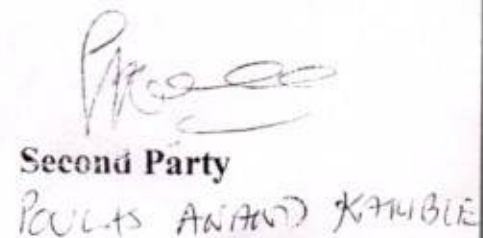 Second Party
POULAS ANAND KAMBLE